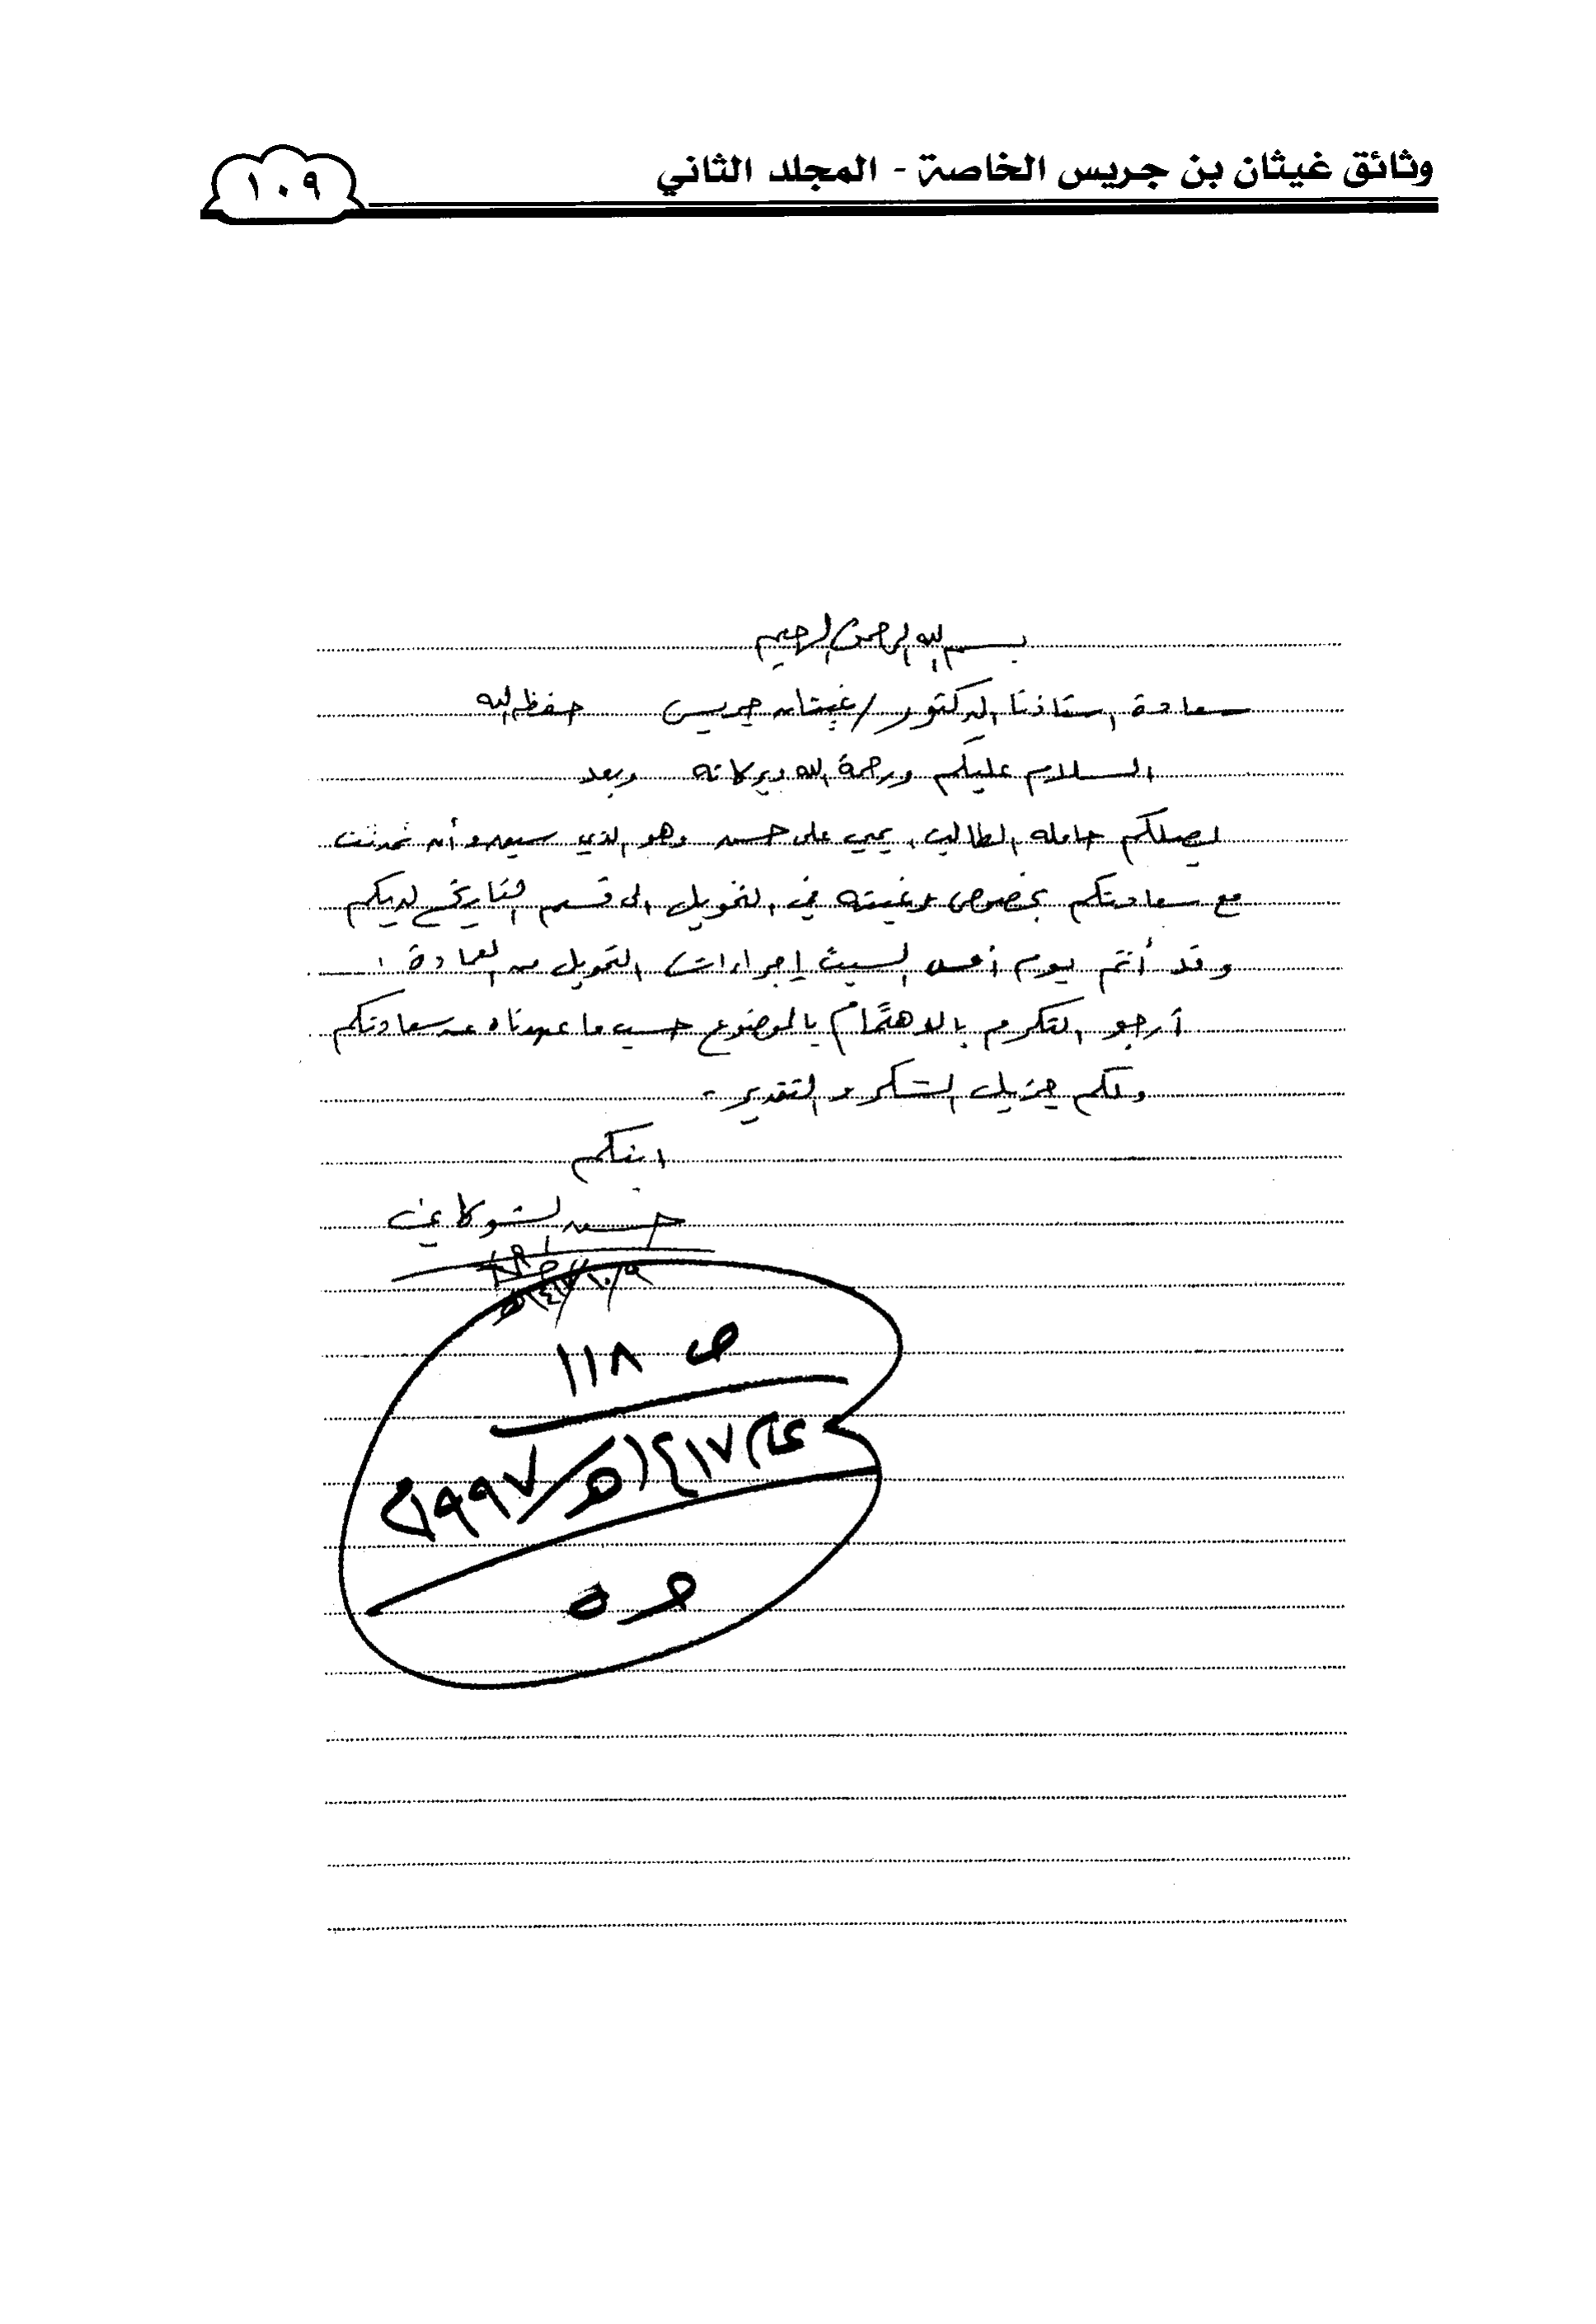 وثائق غيثان بن جريس الخاصة - المجلد الثاني
١٠٩
بسم الله الرحمن الرحيم
سعادة استاذنا الدكتور / غيثان جريس حفظه الله
السلام عليكم ورحمة الله وبركاته وبعد
يصلكم حامله الطالب يحيى علي حسن وهو الذي سبق وأن تحدثت
مع سعادتكم بخصوص رغبته في التحويل الى قسم التاريخ لديكم
وقد أتم يوم أمس السبت إجراءات التحويل من العمادة
أرجو التكرم بالاهتمام بالموضوع حسب ما عهدناه عن سعادتكم
ولكم جزيل الشكر والتقدير
ابنكم
حسن الشوكاني
١٤١٧/١٠/٩هـ
ص ١١٨
عام ١٤١٧هـ/١٩٩٧م
ص ٥